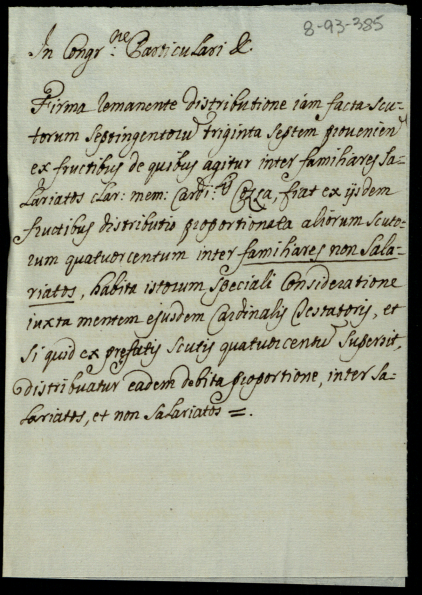 8-93-385
In Congr:ne Particulari &.
Firma remanente distributione iam facta scu-
torum septingentorũ triginta septem provenien
ex fructibus de quibus agitur inter familiares sa-
lariatos clar: mem: Cardi:lis Cozza, fiat ex ijsdem
fructibus distributio proportionata aliorum scuto-
rum quatuorcentum inter familiares non sala-
riatos, habita istorum speciali consideratione
iuxta mentem ejusdem Cardinalis Testatoris, et
si quid ex prefatis scutis quatuorcentũ supersit,
distribuatur eadem debita proportione, inter sa-
lariatos, et non salariatos =.